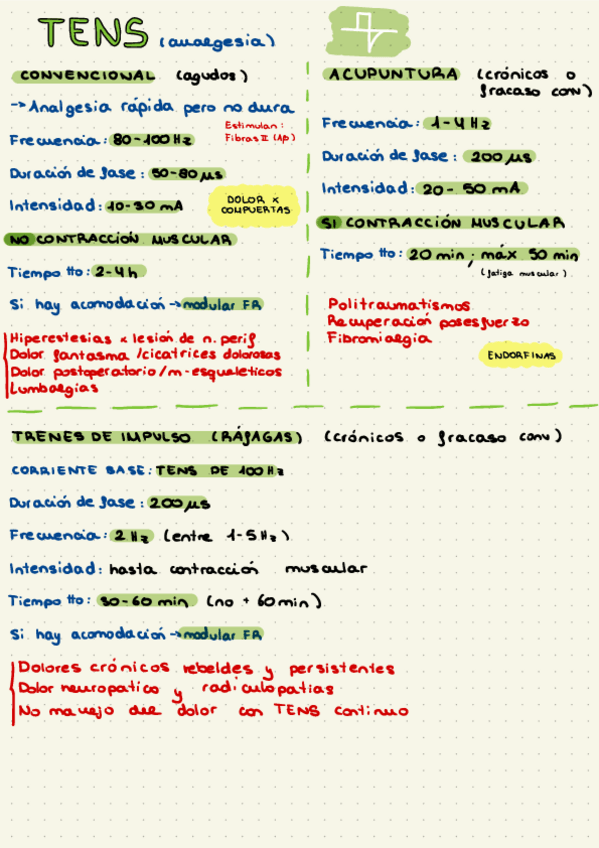 TENS (analgesia)
CONVENCIONAL (agudos)
-> Analgesia rápida pero no dura
Estimulan:
Fibras II (Aβ)
Frecuencia: 80-100Hz
Duración de fase: 50-80µs
Intensidad: 10-30 mA
DOLOR x
COMPUERTAS
NO CONTRACCIÓN MUSCULAR
Tiempo tto: 2-4h
Si hay acomodación -> modular FR
Hiperestesias x lesión de n. perif
Dolor fantasma /cicatrices dolorosas
Dolor postoperatorio/m-esqueléticos
Lumbalgias
ACUPUNTURA (crónicos o
fracaso conv)
Frecuencia: 1-4Hz
Duración de fase: 200µs
Intensidad: 20-50mA
SI CONTRACCIÓN MUSCULAR
Tiempo tto: 20 min; máx 50 min
(fatiga muscular)
Politraumatismos
Recuperación posesfuerzo
Fibromialgia
ENDORFINAS
TRENES DE IMPULSO (RÁFAGAS) (crónicos o fracaso conv)
CORRIENTE BASE: TENS DE 100Hz
Duración de fase: 200µs
Frecuencia: 2Hz (entre 1-5Hz)
Intensidad: hasta contracción muscular
Tiempo tto: 30-60 min (no + 60min)
Si hay acomodación -> modular FR
Dolores crónicos rebeldes y persistentes
Dolor neuropatico y radiculopatias
No manejo del dolor con TENS continuo